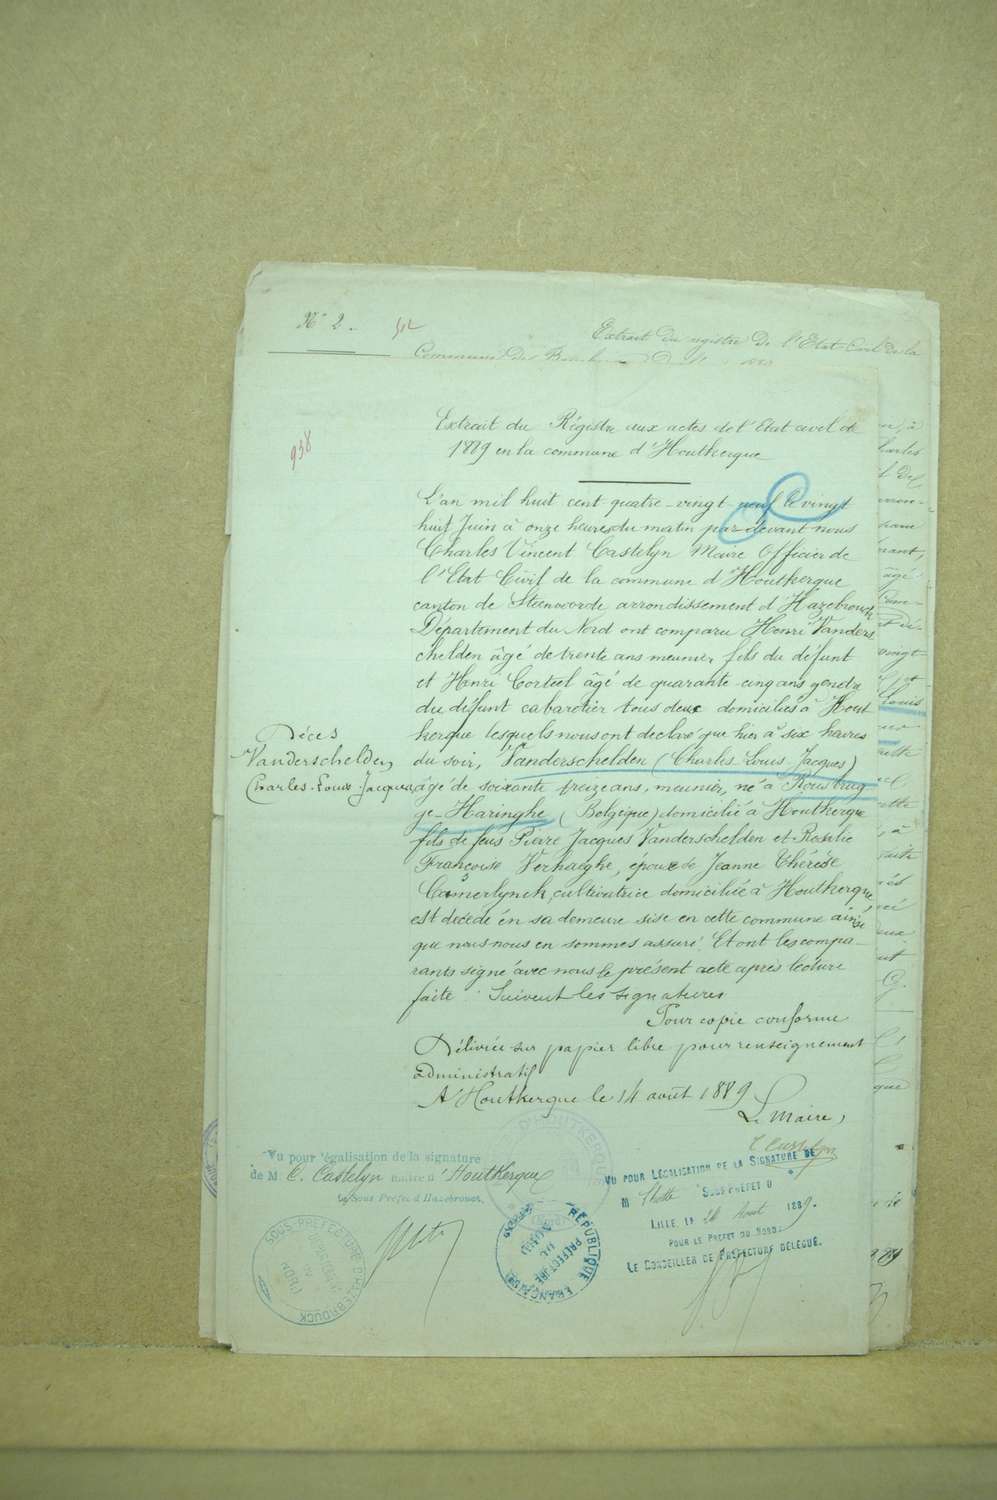 N° 2.
Extrait du registre de l'Etat-Civil de la
Commune de
938
Extrait du Régistre aux actes de l'Etat civil de
1889 en la commune d'Houtkerque
L'an mil huit cent quatre-vingt neuf le vingt
huit Juin à onze heures du matin par-devant nous
Charles Vincent Castelyn Maire Officier de
l'Etat Civil de la commune d'Houtkerque
canton de Steenvoorde arrondissement d'Hazebrouck
Département du Nord ont comparu Henri Vanders
chelden âgé de trente ans meunier fils du défunt
et Henri Corteel âgé de quarante-cinq ans gendre
du défunt cabaretier tous deux domiciliés à Hout
kerque lesquels nous ont déclaré que hier à six heures
du soir, Vanderschelden (Charles-Louis-Jacques)
Décès
Vanderschelden
Charles-Louis-Jacques
âgé de soixante treize ans, meunier, né à Rousbrug
ge-Haringhe (Belgique) domicilié à Houtkerque
fils de feus Pierre Jacques Vanderschelden et Rosalie
Françoise Verhaeghe, époux de Jeanne Thérèse
Camerlynck, cultivatrice domiciliée à Houtkerque,
est décédé en sa demeure sise en cette commune ainsi
que nous nous en sommes assuré. Et ont les compa-
rants signé avec nous le présent acte après lecture
faite. Suivent les signatures
Pour copie conforme
Délivrée sur papier libre pour renseignement
administratif
A Houtkerque le 14 août 1889
Le Maire,
C. Castelyn
Vu pour légalisation de la signature
de M C. Castelyn maire d'Houtkerque
Le Sous Préfet d'Hazebrouck,
D'HOUTKERQUE
SOUS-PRÉFECTURE D'HAZEBROUCK
(NORD)
RÉPUBLIQUE FRANÇAISE
PRÉFECTURE DU NORD
VU POUR LÉGALISATION DE LA SIGNATURE DE
M SOUS-PRÉFET D
LILLE, LE 24 Août 1889.
POUR LE PRÉFET DU NORD:
LE CONSEILLER DE PRÉFECTURE DÉLÉGUÉ.